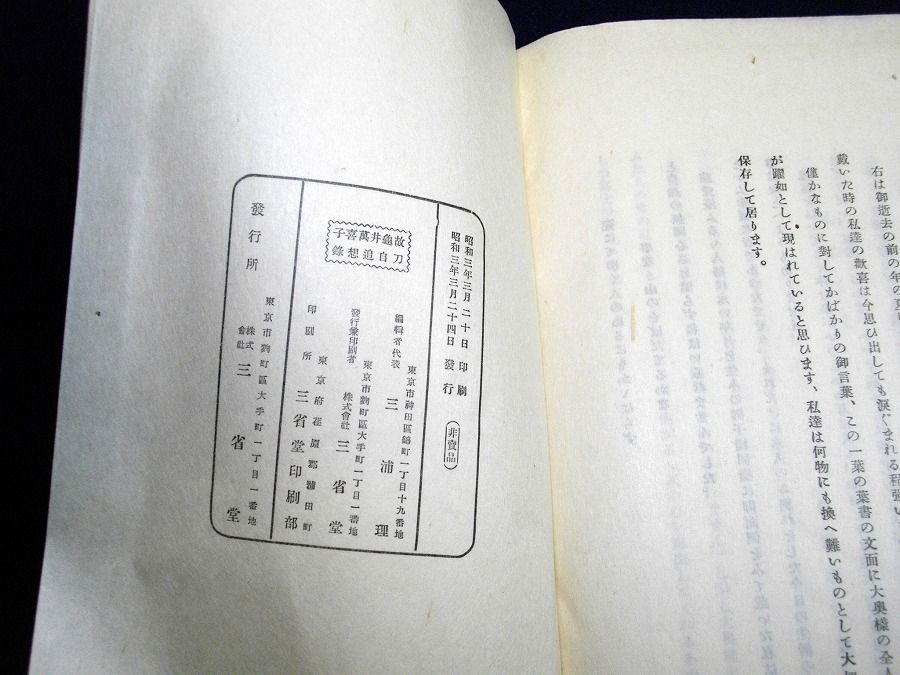 右は御逝去の前の年の
戴いた時の私達の歡喜は今思ひ出しても涙ぐまれる程强い
僅かなものに對してかばかりの御言葉、この一葉の葉書の文面に大奥樣の全人
が躍如として現はれていると思ひます、私達は何物にも換へ難いものとして大
保存して居ります。
昭和三年三月二十日 印刷
昭和三年三月二十四日 發行
(非賣品)
故龜井萬喜子
刀自追想錄
東京市神田區錦町一丁目十九番地
編輯者代表 三浦理
東京市麴町區大手町一丁目一番地
發行兼印刷者 株式會社 三省堂
東京府荏原郡蒲田町
印刷所 三省堂印刷部
東京市麴町區大手町一丁目一番地
發行所 株式會社 三省堂